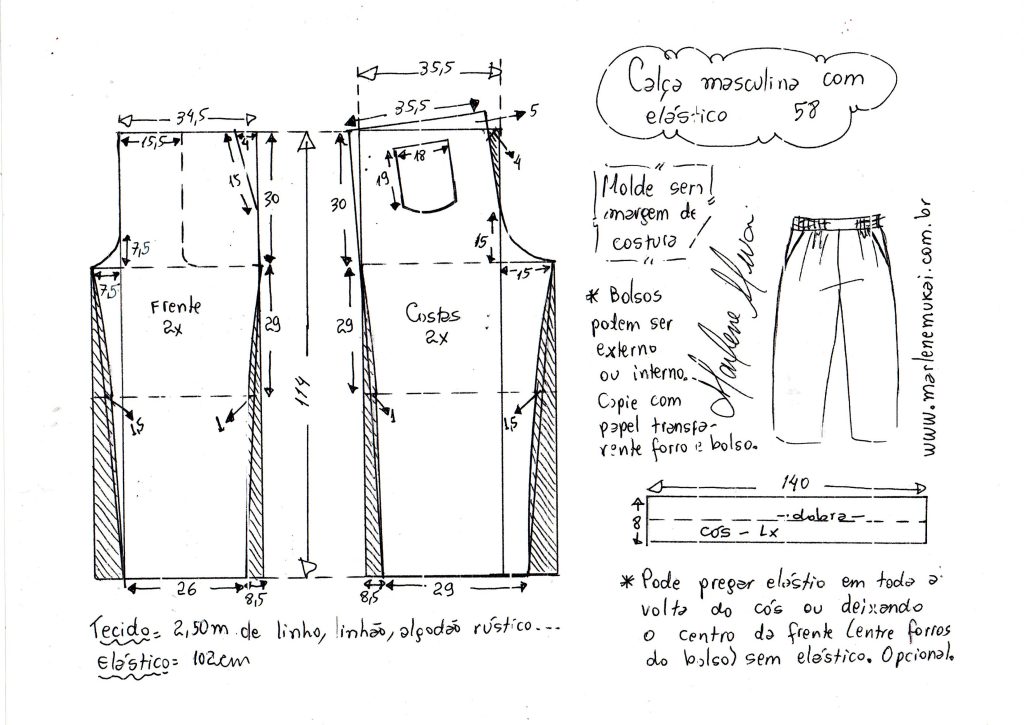 Calça masculina com
elástico 58
Molde sem
margem de
costura
Marlene Mukai
www.marlenemukai.com.br
34,5
15,5
4
15
30
7,5
7,5
Frente
2x
29
1,5
1
26
8,5
114
35,5
35,5
5
4
18
19
30
15
15
Costas
2x
29
1
1,5
8,5
29
* Bolsos
podem ser
externo
ou interno.
Copie com
papel transpa-
rente forro e bolso.
140
8
dobra
cós - 1x
* Pode pregar elástio em toda a
volta do cós ou deixando
o centro da frente (entre forros
do bolso) sem elástico. Opcional.
Tecido = 2,50m de linho, linhão, algodão rústico...
Elástico = 102cm